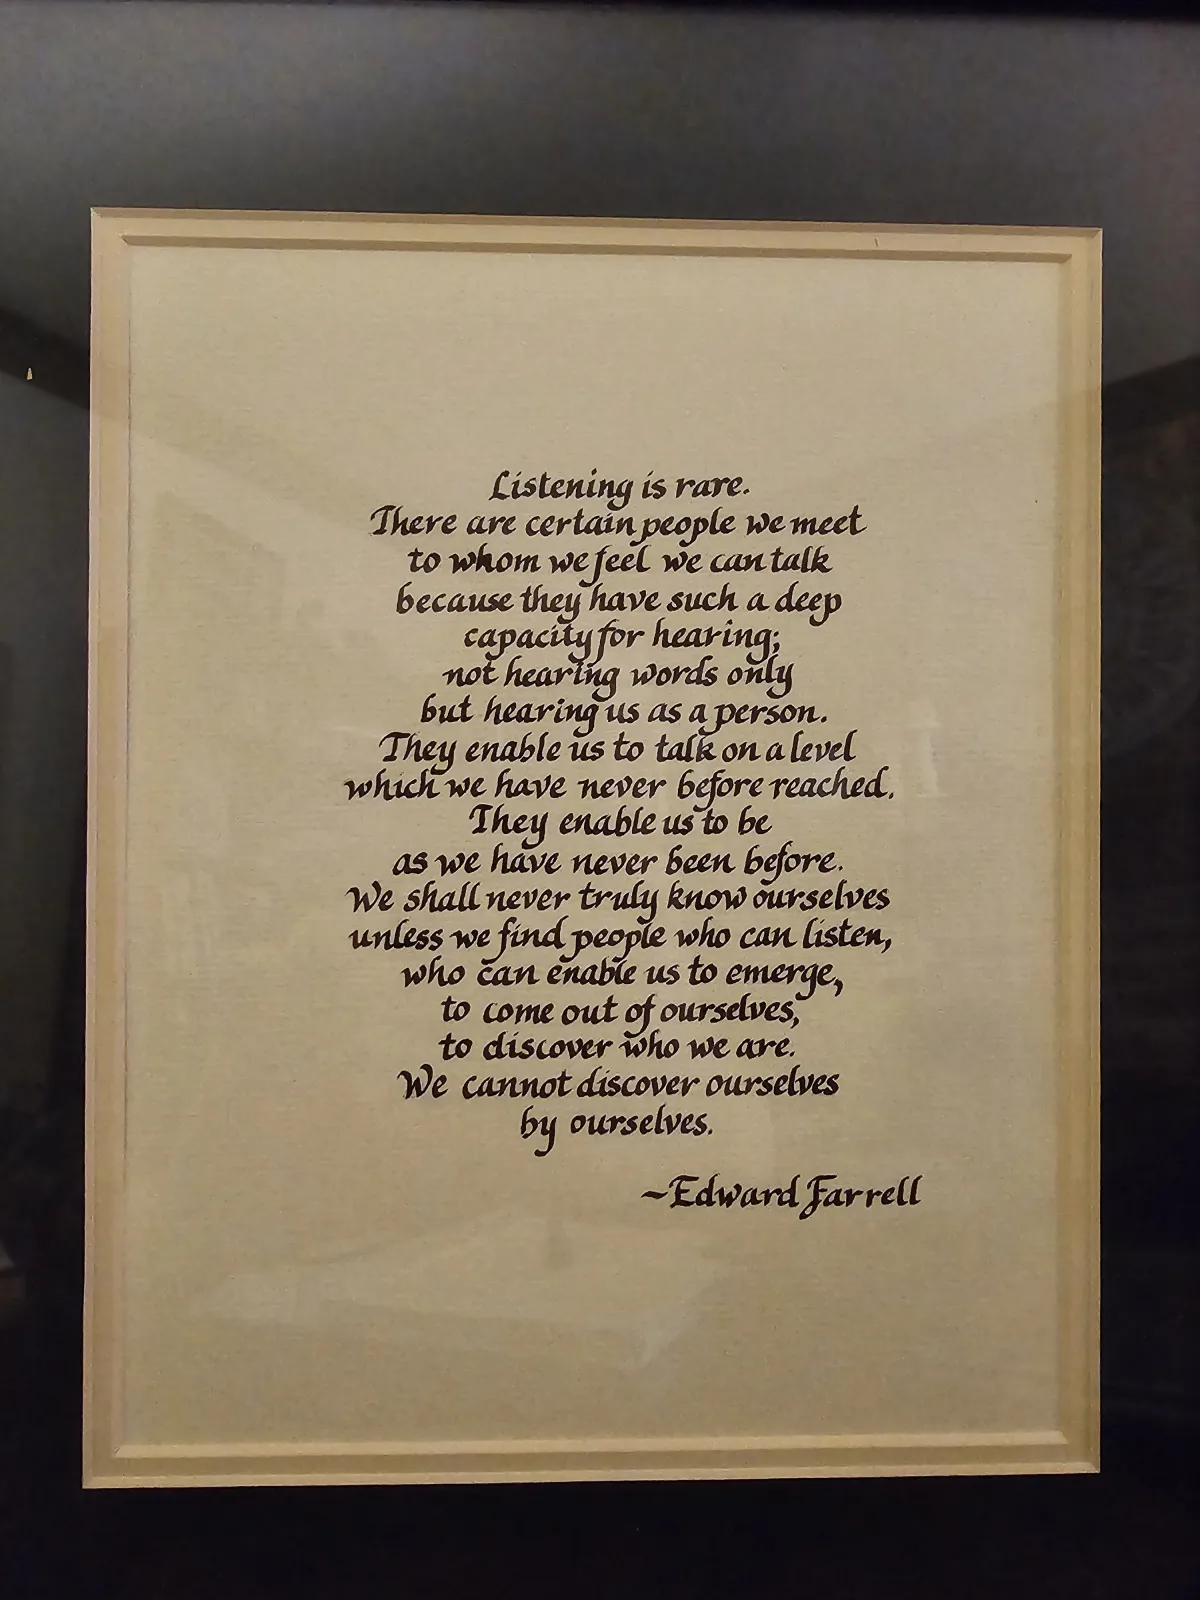 Listening is rare.
There are certain people we meet
to whom we feel we can talk
because they have such a deep
capacity for hearing;
not hearing words only
but hearing us as a person.
They enable us to talk on a level
which we have never before reached.
They enable us to be
as we have never been before.
We shall never truly know ourselves
unless we find people who can listen,
who can enable us to emerge,
to come out of ourselves,
to discover who we are.
We cannot discover ourselves
by ourselves.
~Edward Farrell